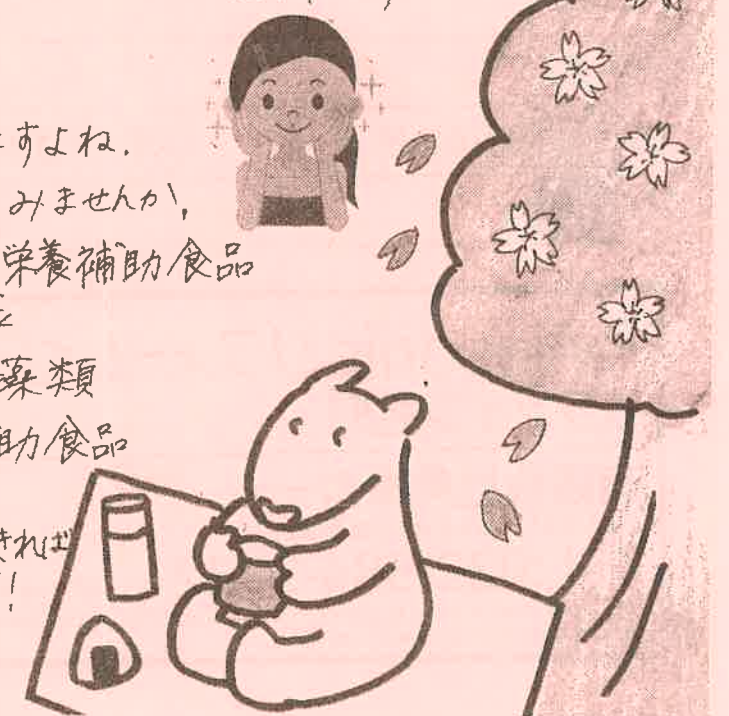 すよね.
みませんか,
栄養補助食品
薬類
助食品
きれば
!